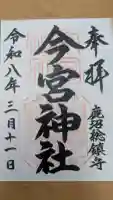 奉拝
鹿沼総鎮守
今宮神社
令和八年二月十一日